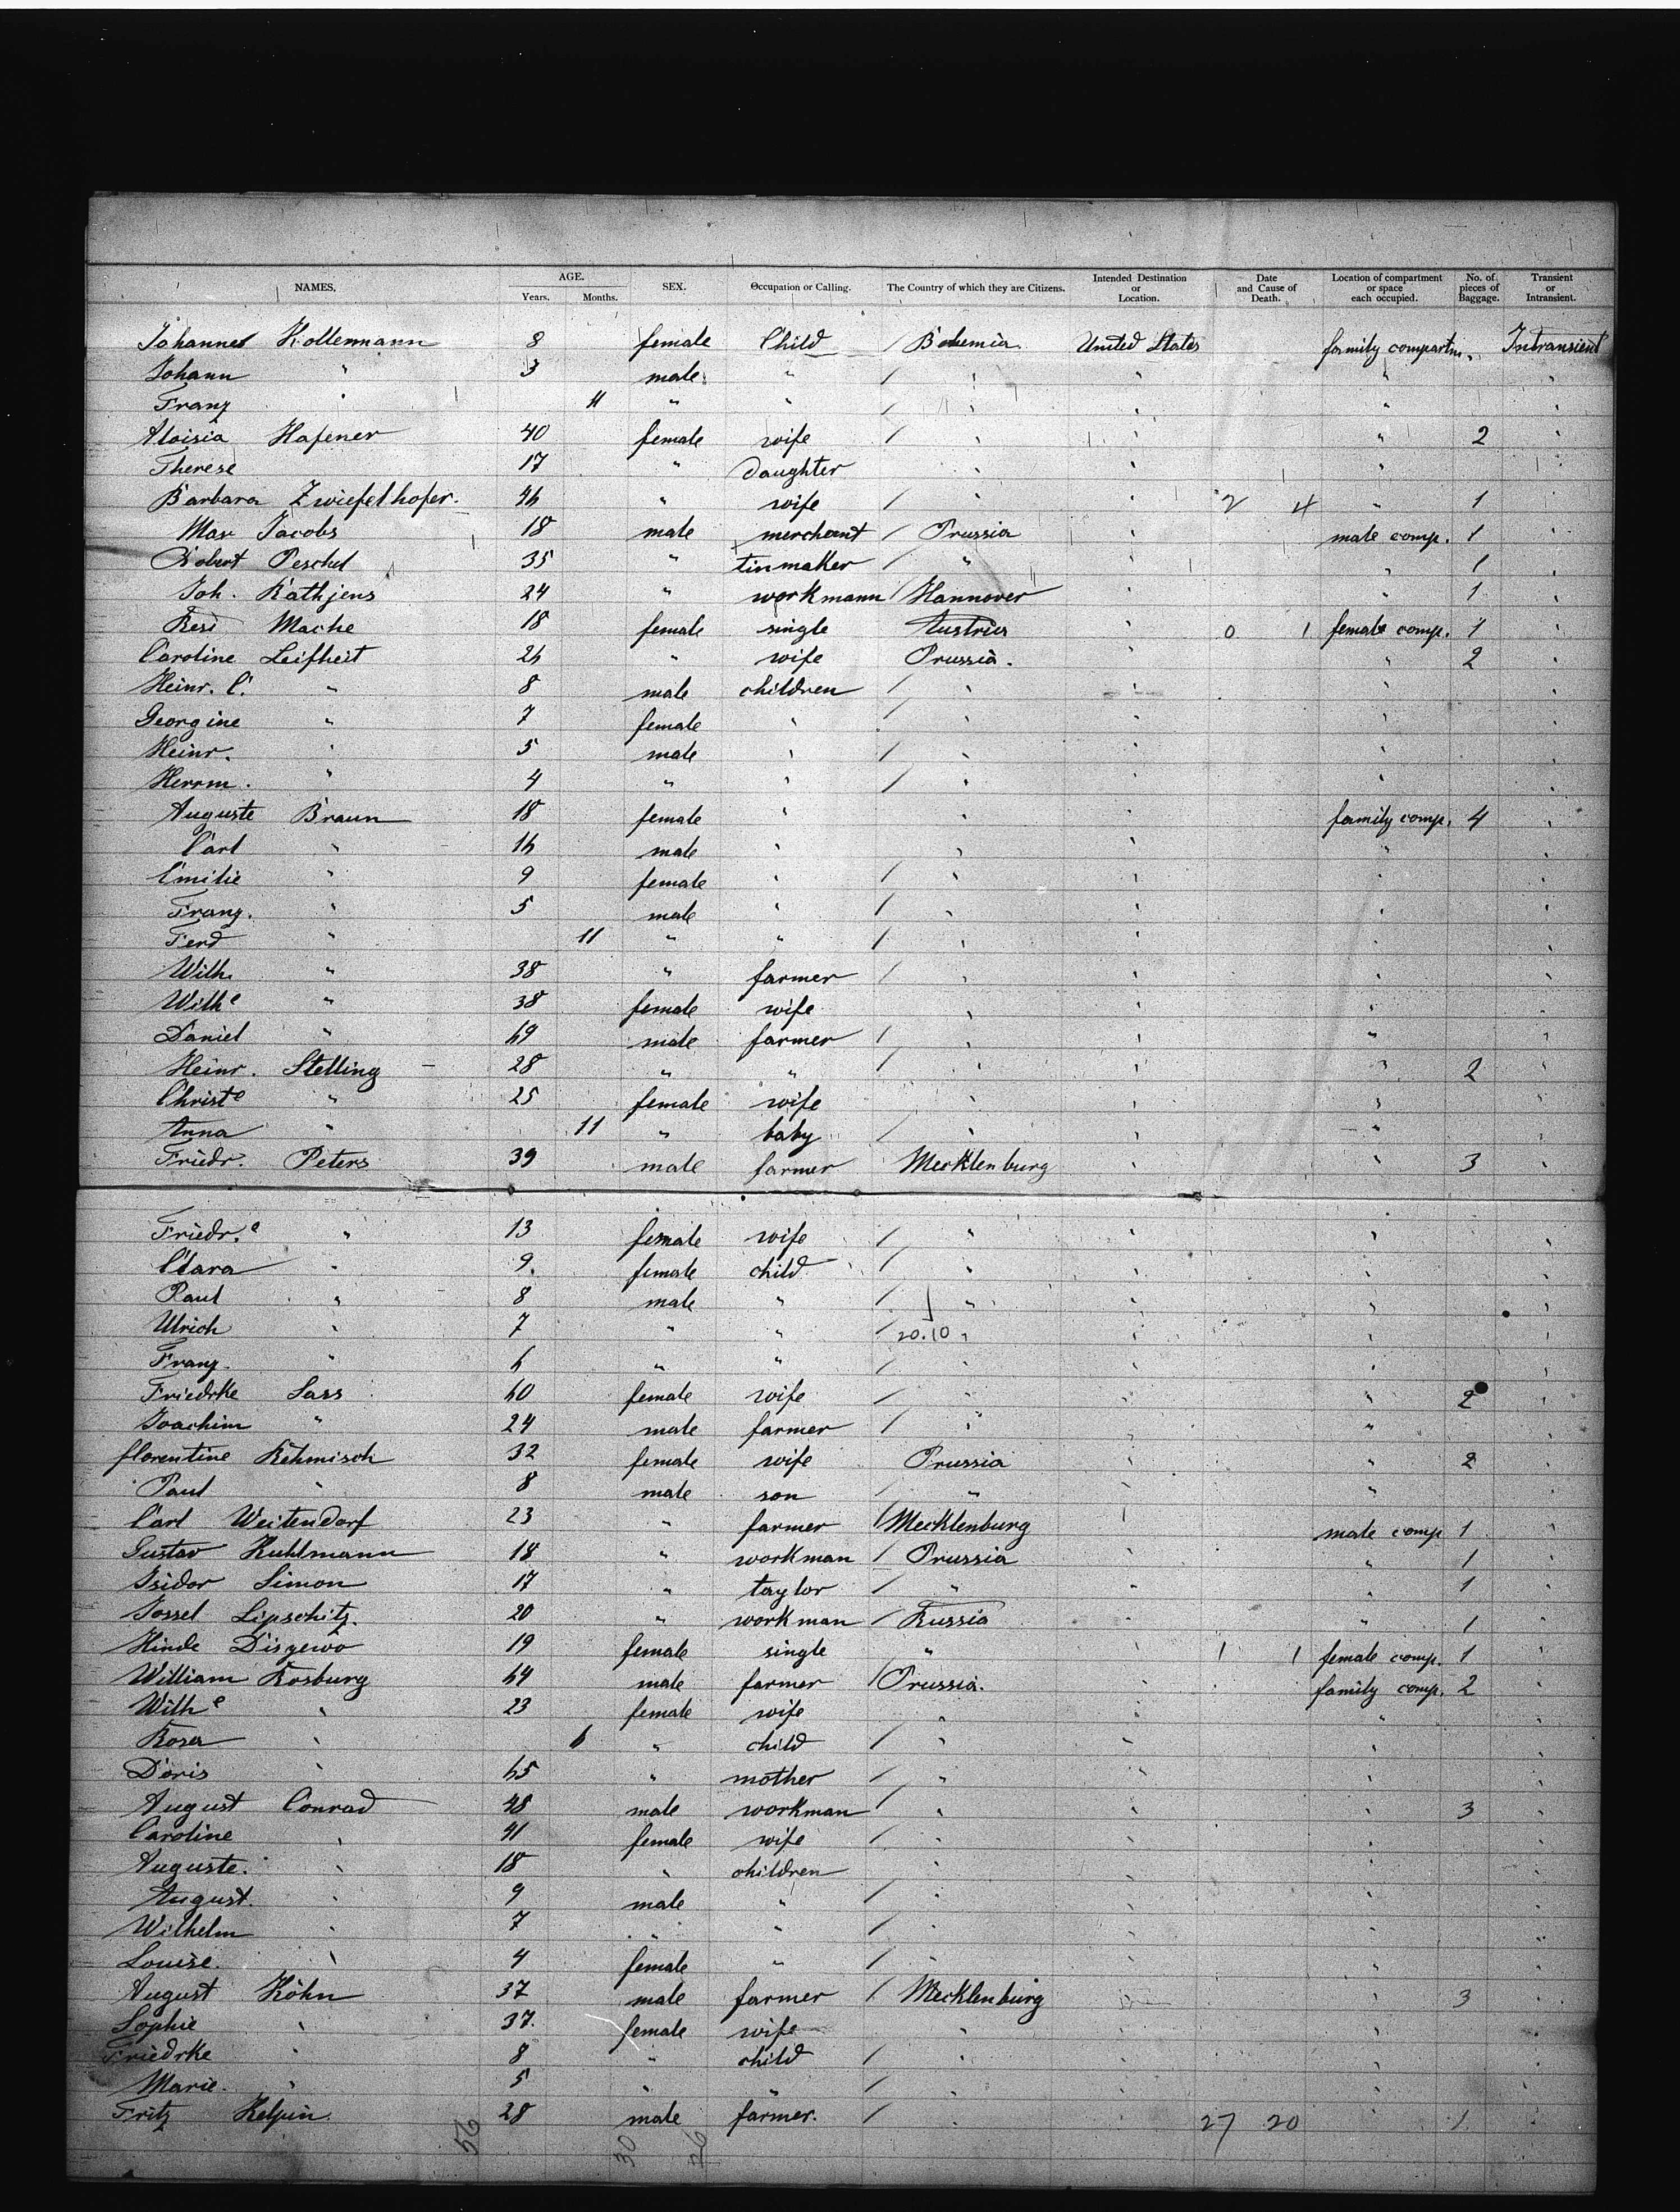 NAMES. AGE. Years. Months. SEX. Occupation or Calling. The Country of which they are Citizens. Intended Destination or Location. Date and Cause of Death. Location of compartment or space each occupied. No. of pieces of Baggage. Transient or Intransient.
Johannes Kollermann 8 female Child / Bohemia United States family compartm. Intransient
Johann " 3 male " / " " " "
Franz " 11 " " / " " " "
Aloisia Hafener 40 female wife / " " " 2 "
Therese 17 " daughter " " " "
Barbara Zwiefelhofer. 46 " wife / " " 2 4 " 1 "
Max Jacobs 18 male merchant / Prussia " male comp. 1 "
Robert Peschel 35 " tinmaker / " " " 1 "
Joh. Rathjens 24 " workmann / Hannover " " 1 "
Resi Mache 18 female single Austria " 0 1 female comp. 1 "
Caroline Leifheit 26 " wife Prussia. " " 2 "
Heinr. C. " 8 male children / " " " "
Georgine " 7 female " / " " " "
Heinr. " 5 male " / " " " "
Herrm. " 4 " " / " " " "
Auguste Braun 18 female " " " family comp. 4 "
Carl " 16 male " " " " "
Emilie " 9 female " / " " " "
Franz. " 5 male " / " " " "
Ferd " 11 " " / " " " "
Wilh. " 38 " farmer / " " " "
Wilhe " 38 female wife " " " "
Daniel " 69 male farmer / " " " "
Heinr. Stelling 28 " " / " " " 2 "
Christe " 25 female wife " " " "
Anna " 11 " baby / " " " "
Friedr. Peters 39 male farmer Mecklenburg " " 3 "
Friedr.e " 13 female wife / " " " "
Clara " 9 female child / " " " "
Paul " 8 male " / " " " "
Ulrich " 7 " " / 20.10 " " " "
Franz " 6 " " / " " " "
Friedrke Sass 60 female wife / " " " 2 "
Joachim " 24 male farmer / " " " "
florentine Rehmisch 32 female wife Prussia " " 2 "
Paul " 8 male son / " " " "
Carl Weitendorf 23 " farmer / Mecklenburg " male comp 1 "
Gustav Kuhlmann 18 " workman / Prussia " " 1 "
Isidor Simon 17 " taylor / " " " 1 "
Jossel Lipschitz. 20 " workman / Russia " " 1 "
Hinde 19 female single " " 1 1 female comp. 1 "
William Rosburg 64 male farmer / Prussia. " family comp. 2 "
Wilhe " 23 female wife " " " "
Rosa " 6 " child / " " " "
Doris " 65 " mother / " " " "
August Conrad 48 male workman / " " " 3 "
Caroline " 41 female wife / " " " "
Auguste. " 18 " children " " " "
August. " 9 male " / " " " "
Wilhelm " 7 " " / " " " "
Louise. " 4 female " / " " " "
August Köhn 37 male farmer / Mecklenburg " 3 "
Sophie " 37. female wife " " " "
Friedrke " 8 " child / " " " "
Marie. " 5 " " / " " " "
Fritz Kelpin 28 male farmer. / " " 27 20 " 1 "
30 26